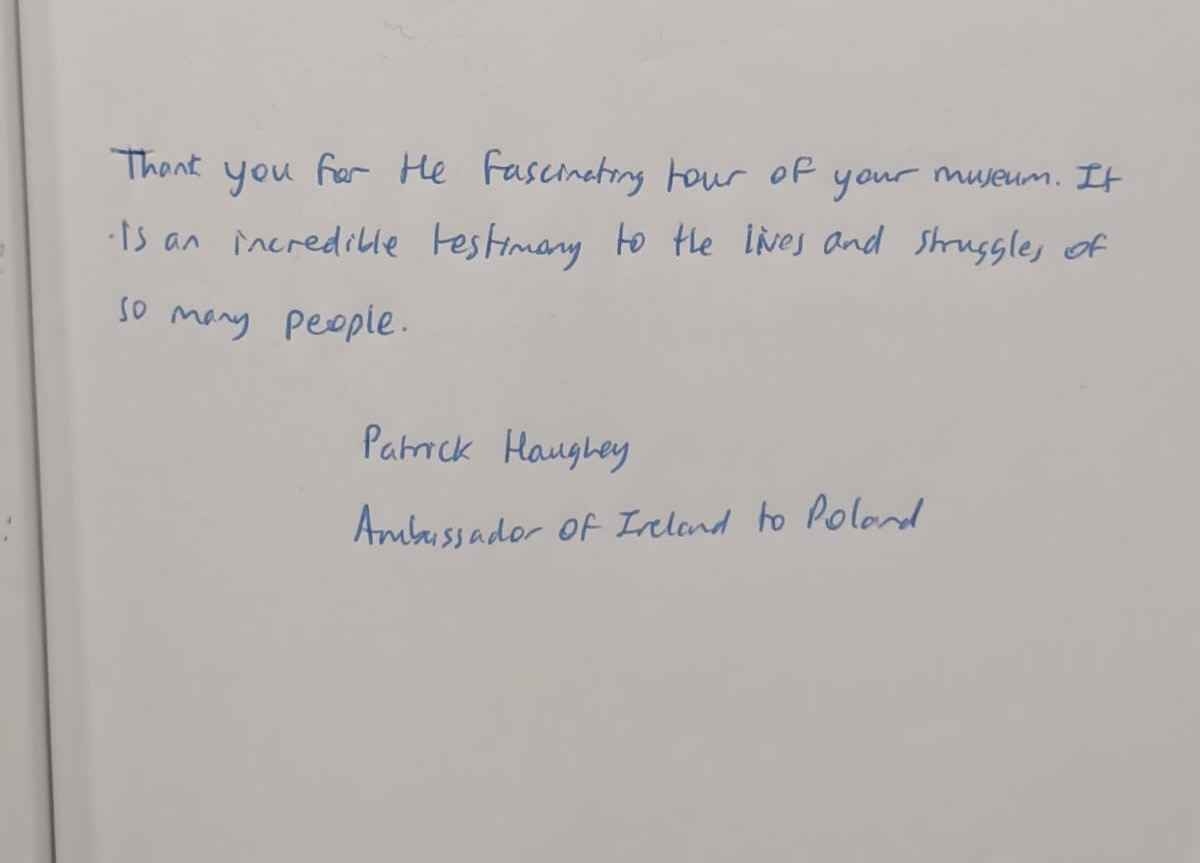 Thank you for the fascinating tour of your museum. It
is an incredible testimony to the lives and struggles of
so many people.
Patrick Haughey
Ambassador of Ireland to Poland